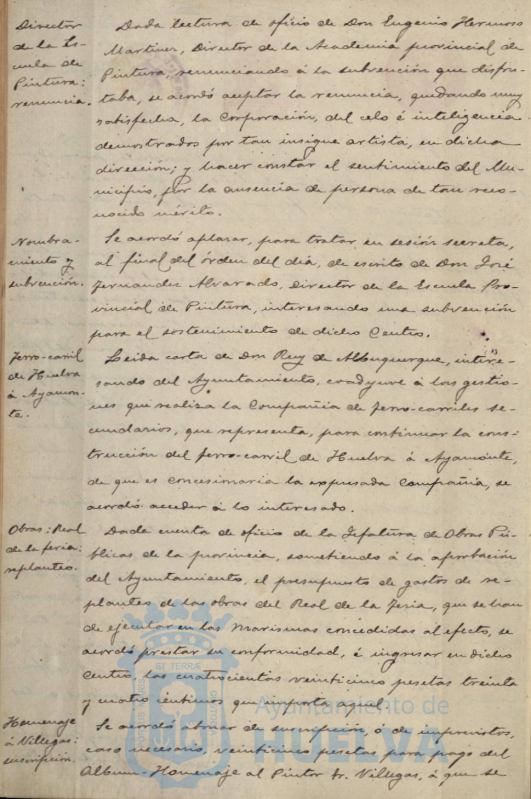 Director
de la Es-
cuela de
Pintura:
renuncia.
Dada lectura de oficio de Don Eugenio Hermoso
Martinez, Director de la Academia provincial de
Pintura, renunciando á la subvención que disfru-
taba, se acordó aceptar la renuncia, quedando muy
satisfecha, la Corporación, del celo é inteligencia
demostrados por tan insigne artista, en dicha
dirección; y hacer constar el sentimiento del Mu-
nicipio, por la ausencia de persona de tan reco-
nocido mérito.
Nombra-
miento y
subvención.
Se acordó aplazar, para tratar en sesión secreta,
al final del órden del dia, de escrito de Don José
Fernandez Alvarado, director de la Escuela Pro-
vincial de Pintura, interesando una subvención
para el sostenimiento de dicho Centro.
Ferro-carril
de Huelva
á Ayamon-
te.
Leida carta de Don Ruy de Albuquerque, intere-
sando del Ayuntamiento, coadyuve á las gestio-
nes que realiza la Compañia de ferro-carriles se-
cundarios, que representa, para continuar la cons-
trucción del ferro-carril de Huelva á Ayamonte,
de que es concesionaria la expresada Compañia, se
acordó acceder á lo interesado.
Obras: Real
de la feria:
replanteo.
Dada cuenta de oficio de la Jefatura de Obras Pú-
blicas de la provincia, sometiendo á la aprobación
del Ayuntamiento, el presupuesto de gastos de re-
planteo de las obras del Real de la Feria, que se han
de ejecutar en las Marismas concedidas al efecto, se
acordó prestar su conformidad, é ingresar en dicho
Centro, las cuatrocientas veinticinco pesetas treinta
y cuatro céntimos que importa aquel.
Homenaje
á Villegas:
suscripción.
Se acordó abonar de suscripción, ó de imprevistos,
caso necesario, veinticinco pesetas para pago del
Album-Homenaje al Pintor Sr. Villegas, á que se
ET TERRÆ
Ayuntamiento de
HUELVA